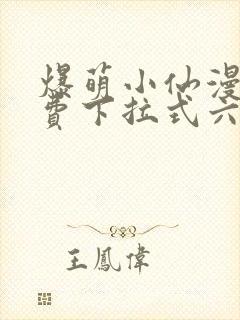 爆萌小仙漫
费下拉式六
王鳳偉